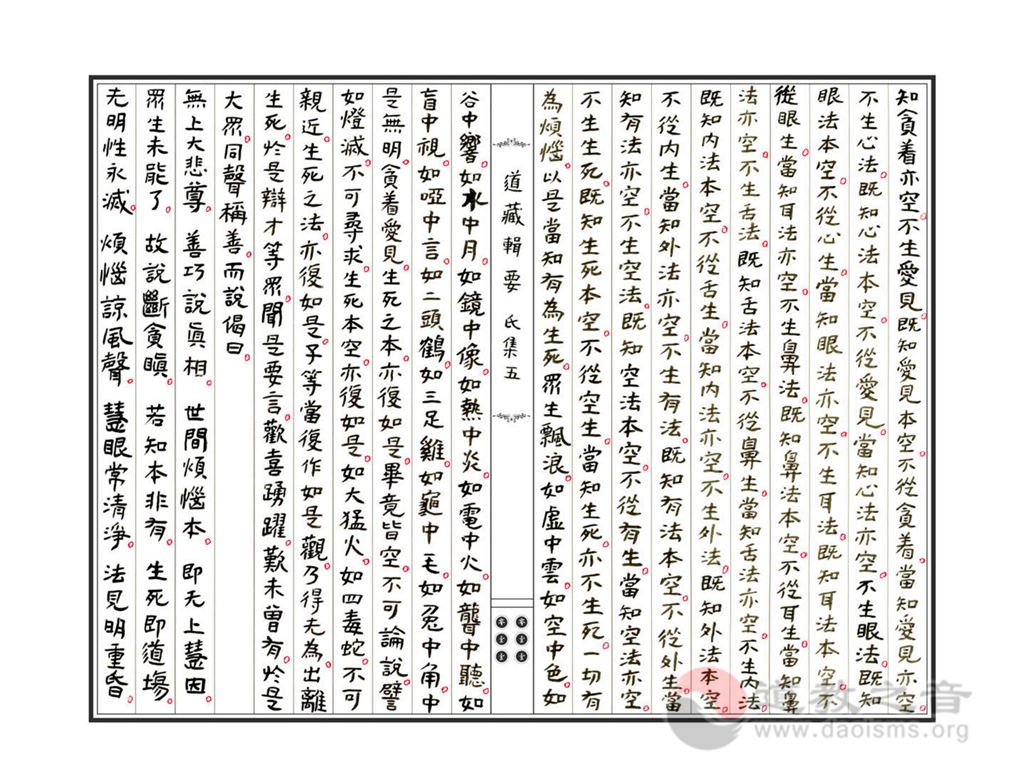 知貪着亦空不生愛見既知愛見本空不從貪着當知愛見亦空
不生心法既知心法本空不從愛見當知心法亦空不生眼法既知
眼法本空不從心生當知眼法亦空不生耳法既知耳法本空不
從眼生當知耳法亦空不生鼻法既知鼻法本空不從耳生當知鼻
法亦空不生舌法既知舌法本空不從鼻生當知舌法亦空不生內法
既知內法本空不從舌生當知內法亦空不生外法既知外法本空
不從內生當知外法亦空不生有法既知有法本空不從外生當
知有法亦空不生空法既知空法本空不從有生當知空法亦空
不生生死既知生死本空不從空生當知生死亦不生死一切有
為煩惱以是當知有為生死眾生飄浪如虛中雲如空中色如
道藏輯要 氐集五
谷中響如水中月如鏡中像如熱中炎如電中火如聾中聽如
盲中視如啞中言如二頭鶴如三足雞如龜中毛如兔中角中
是無明貪着愛見生死之本亦復如是畢竟皆空不可論說譬
如燈滅不可尋求生死本空亦復如是如大猛火如四毒蛇不可
親近生死之法亦復如是子等當復作如是觀乃得夫為出離
生死於是辯才等眾聞是要言歡喜踴躍歎未曾有於是
大眾同聲稱善而說偈曰
無上大悲尊 善巧說眞相 世間煩惱本 即无上慧因
眾生未能了 故說斷貪瞋 若知本非有 生死即道場
无明性永滅 煩惱諒風聲 慧眼常清淨 法見明重昏
道教之音
www.daoisms.org